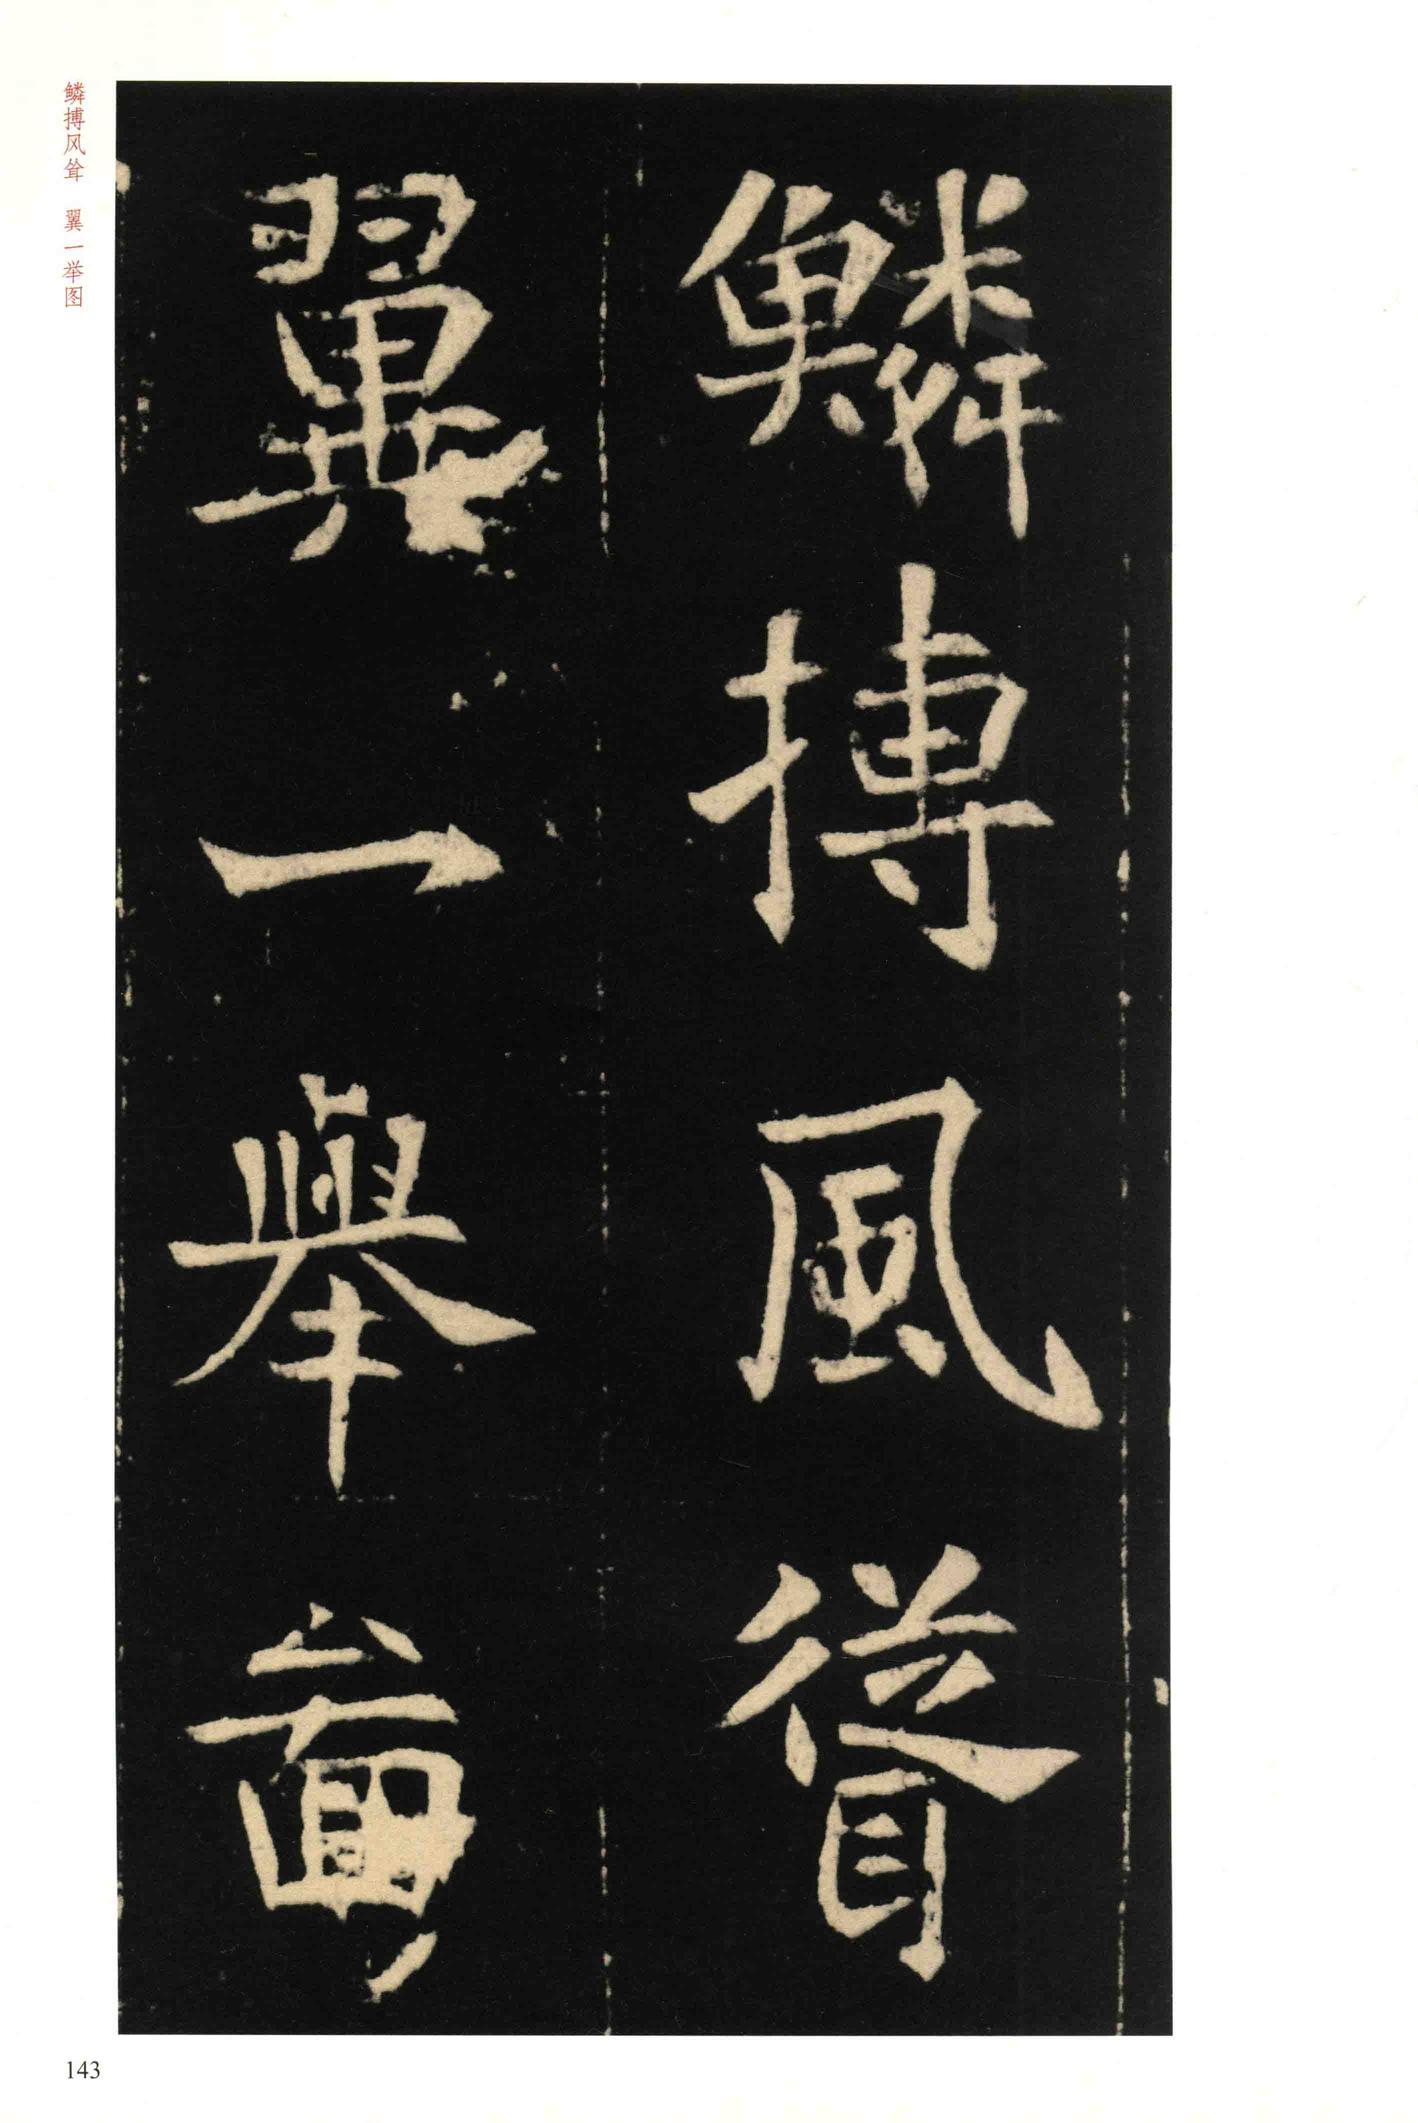 鳞搏风耸 翼一举图
鱗搏風聳
翼一舉啚
143